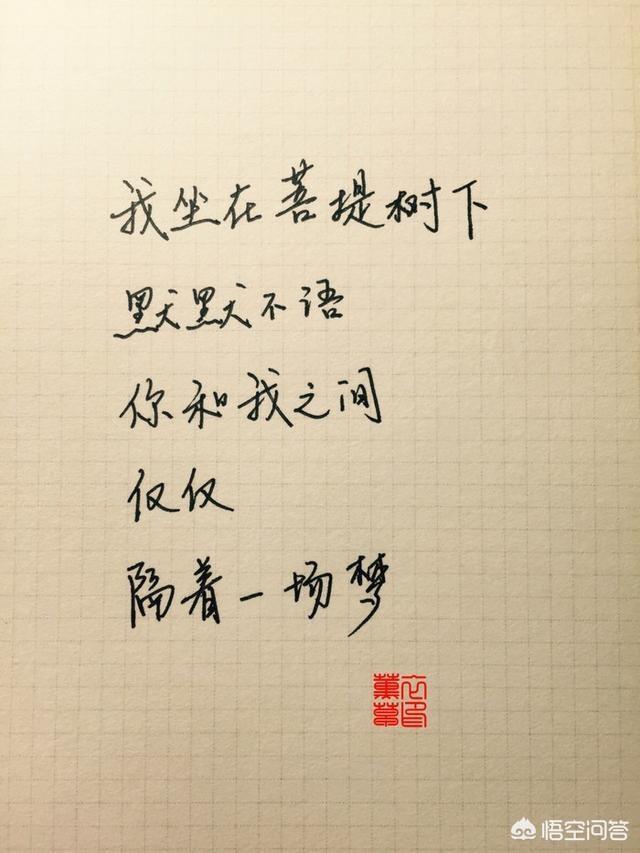 我坐在菩提树下
默默不语
你和我之间
仅仅
隔着一场梦
悟空问答